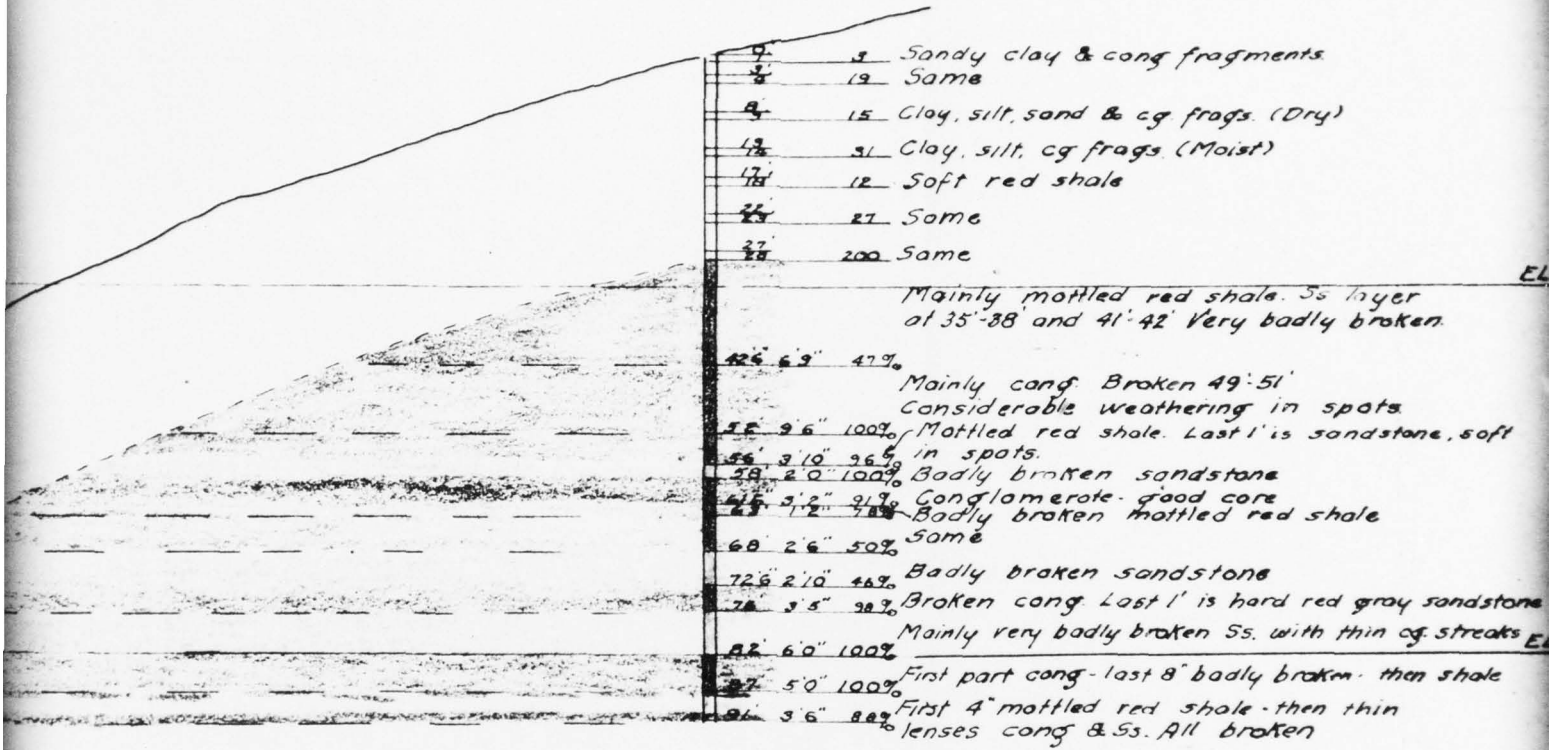 0' 1' 3 Sandy clay & cong fragments.
19 Same
8' 9' 15 Clay, silt, sand & cg. frags. (Dry)
13' 14' 31 Clay, silt, cg frags. (Moist)
17' 18' 12 Soft red shale
22' 23' 27 Same
27' 28' 200 Same
EL
Mainly mottled red shale. Ss layer
at 35'-38' and 41'-42' Very badly broken.
42'6" 6'9" 47%
Mainly cong. Broken 49'-51'
Considerable weathering in spots
52' 9'6" 100% Mottled red shale. Last 1' is sandstone, soft
in spots.
56' 3'10" 96%
58' 2'0" 100% Badly broken sandstone
61'6" 3'2" 91% Conglomerate - good core
63' 1'2" 78% Badly broken mottled red shale
68' 2'6" 50% Same
72'6" 2'10" 46% Badly broken sandstone
76' 3'5" 98% Broken cong. Last 1' is hard red gray sandstone
Mainly very badly broken Ss. with thin cg. streaks EL
82' 6'0" 100%
87' 5'0" 100% First part cong - last 8" badly broken - then shale
91' 3'6" 88% First 4" mottled red shale - then thin
lenses cong & Ss. All broken